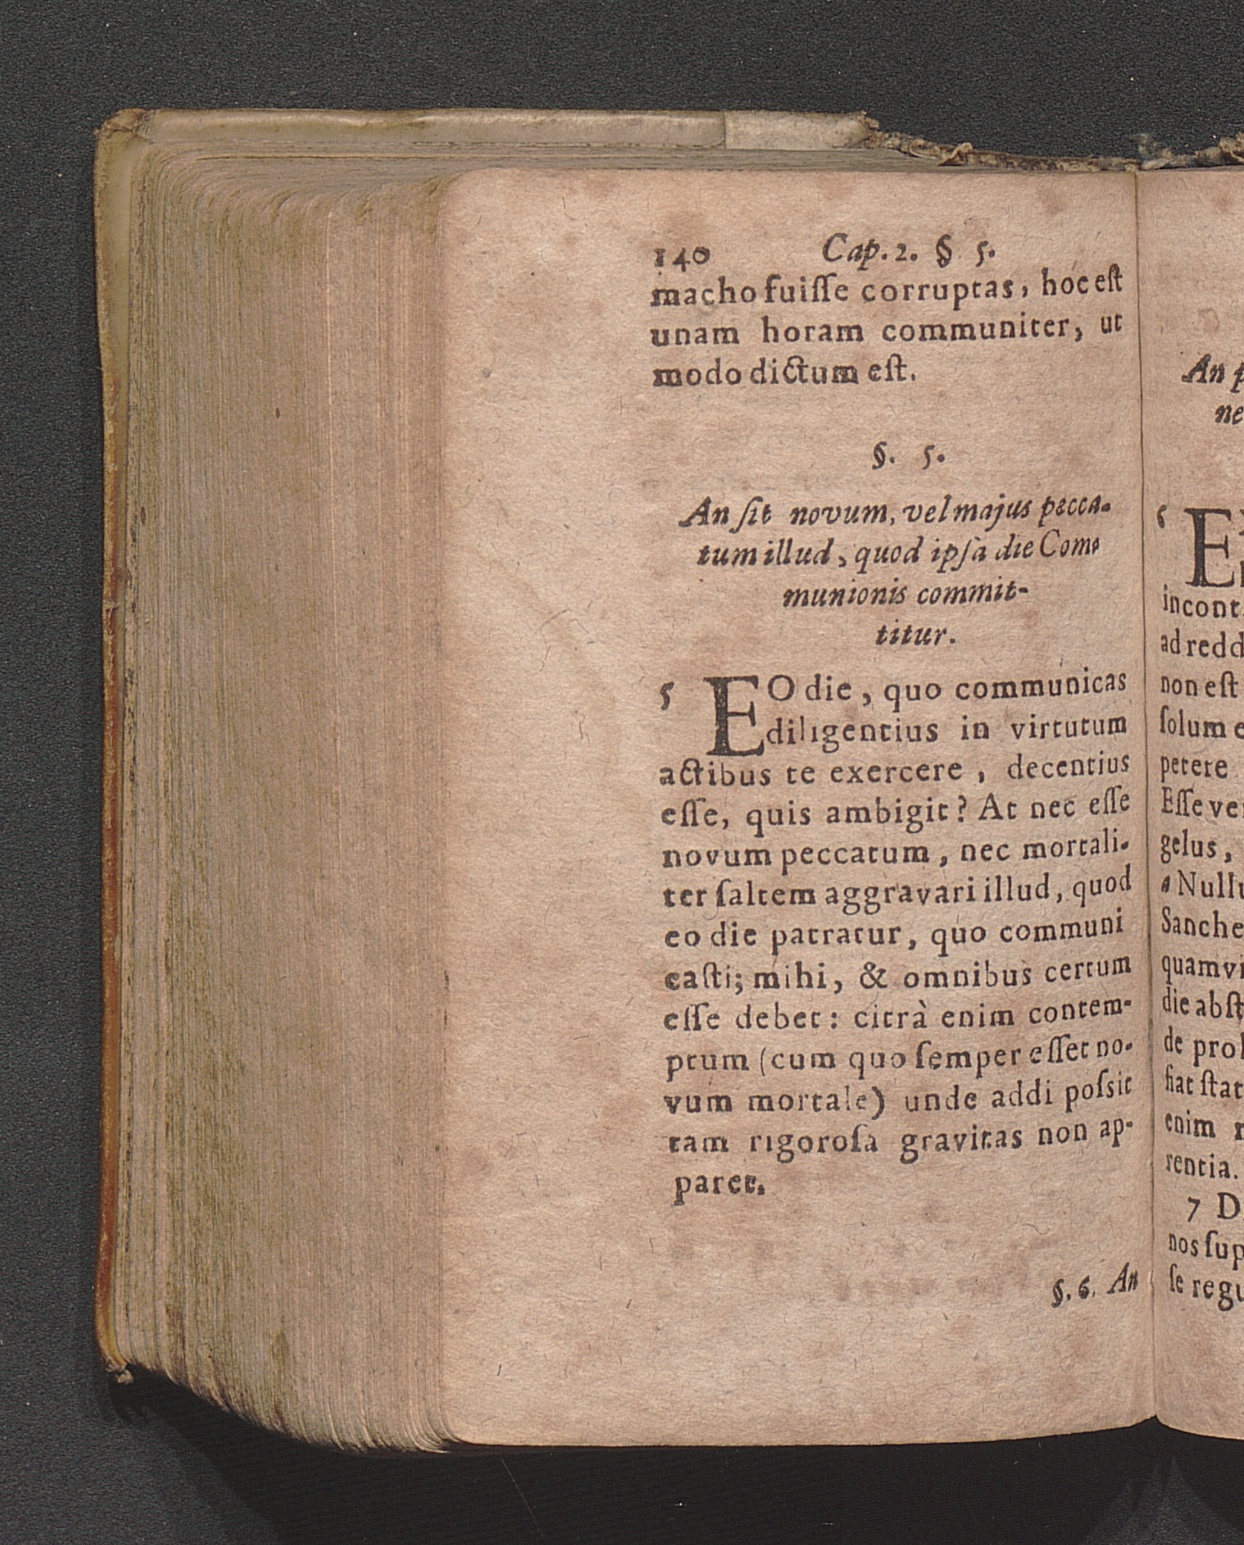 140 Cap. 2. § 5.
macho fuiſſe corruptas, hoc eſt
unam horam communiter, ut
modo dictum eſt.
§. 5.
An ſit novum, vel majus pecca-
tum illud, quod ipſa die Com-
munionis commit-
titur.
5 EO die, quo communicas
diligentius in virtutum
actibus te exercere, decentius
eſſe, quis ambigit? At nec eſſe
novum peccatum, nec mortali-
ter ſaltem aggravari illud, quod
eo die patratur, quo communi
caſti; mihi, & omnibus certum
eſſe debet: citrà enim contem-
ptum (cum quo ſemper eſſet no-
vum mortale) unde addi poſsit
tam rigoroſa gravitas non ap-
paret.
§. 6. An
An
ne
E
incont
ad redd
non eſt
ſolum
petere
Eſſe
gelus,
Nullu
Sanche
quamvi
die abſt
de
fiat
enim
rentia.
7
nos
ſe